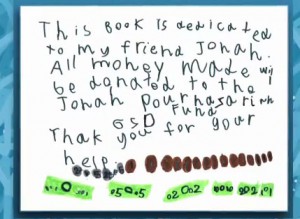 This Book Is dedicated
to my friend Jonah.
All money made wil
be donated to the
Jonah pournasarian
GSD Fund
Thak you for your
help.